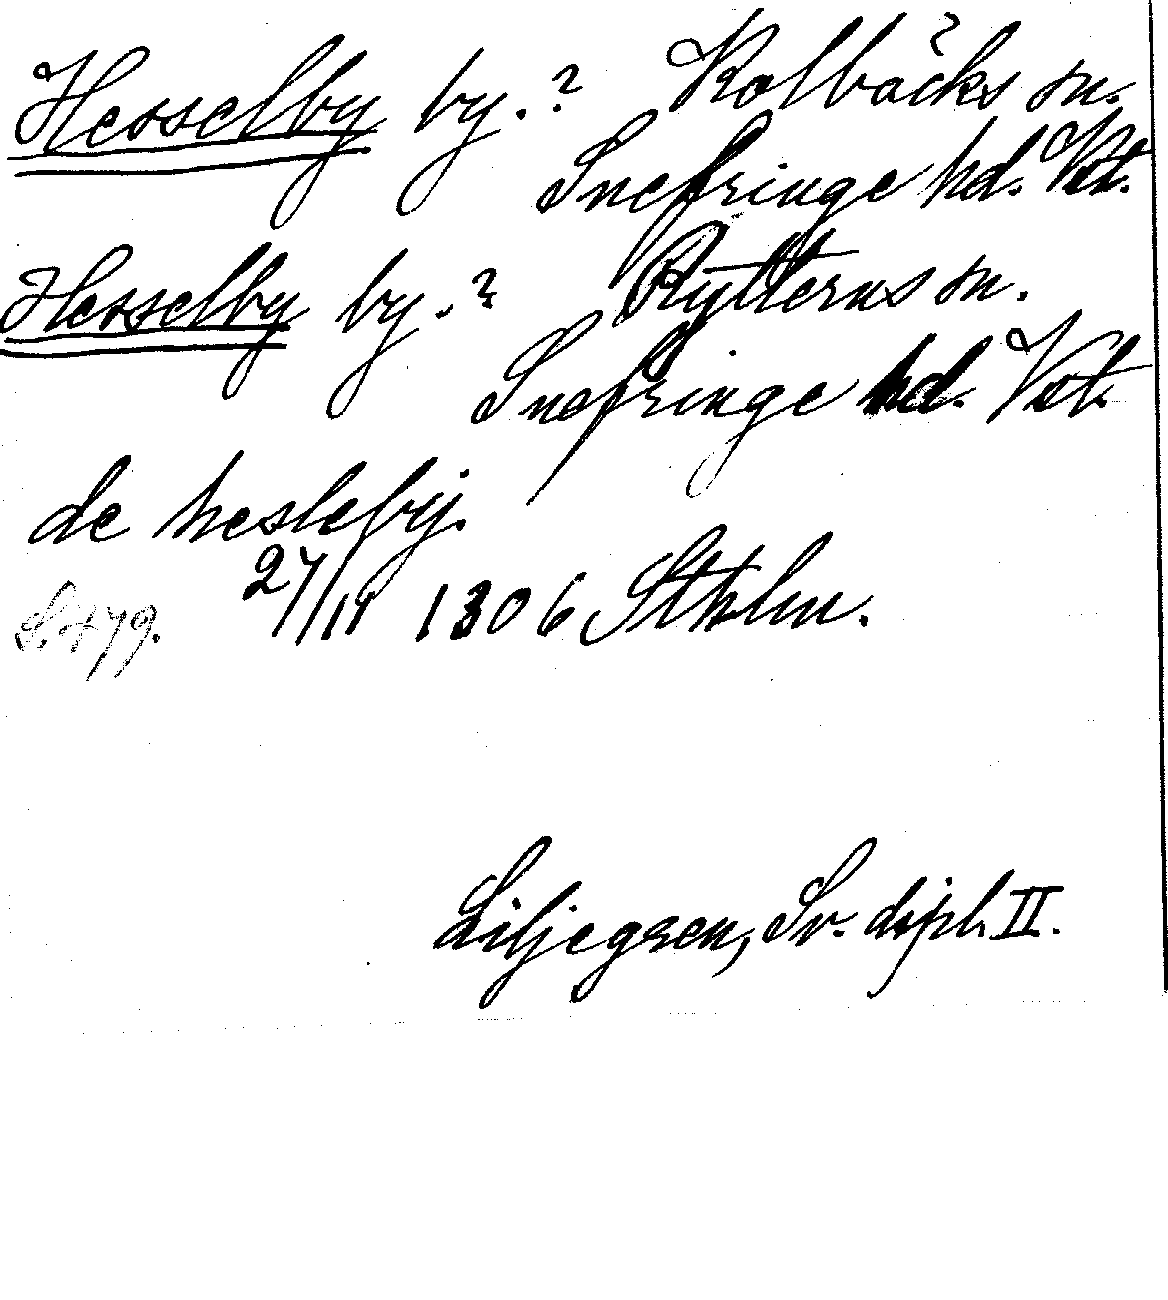 Hesselby by.? Kolbäcks sn.
Snefringe hd. Vst.
Hesselby by.? Rytterns sn.
Snefringe hd. Vst.
de hesleby.
27/11 1306 Sthlm.
S. 479.
Liljegren, Sv. dipl. II.